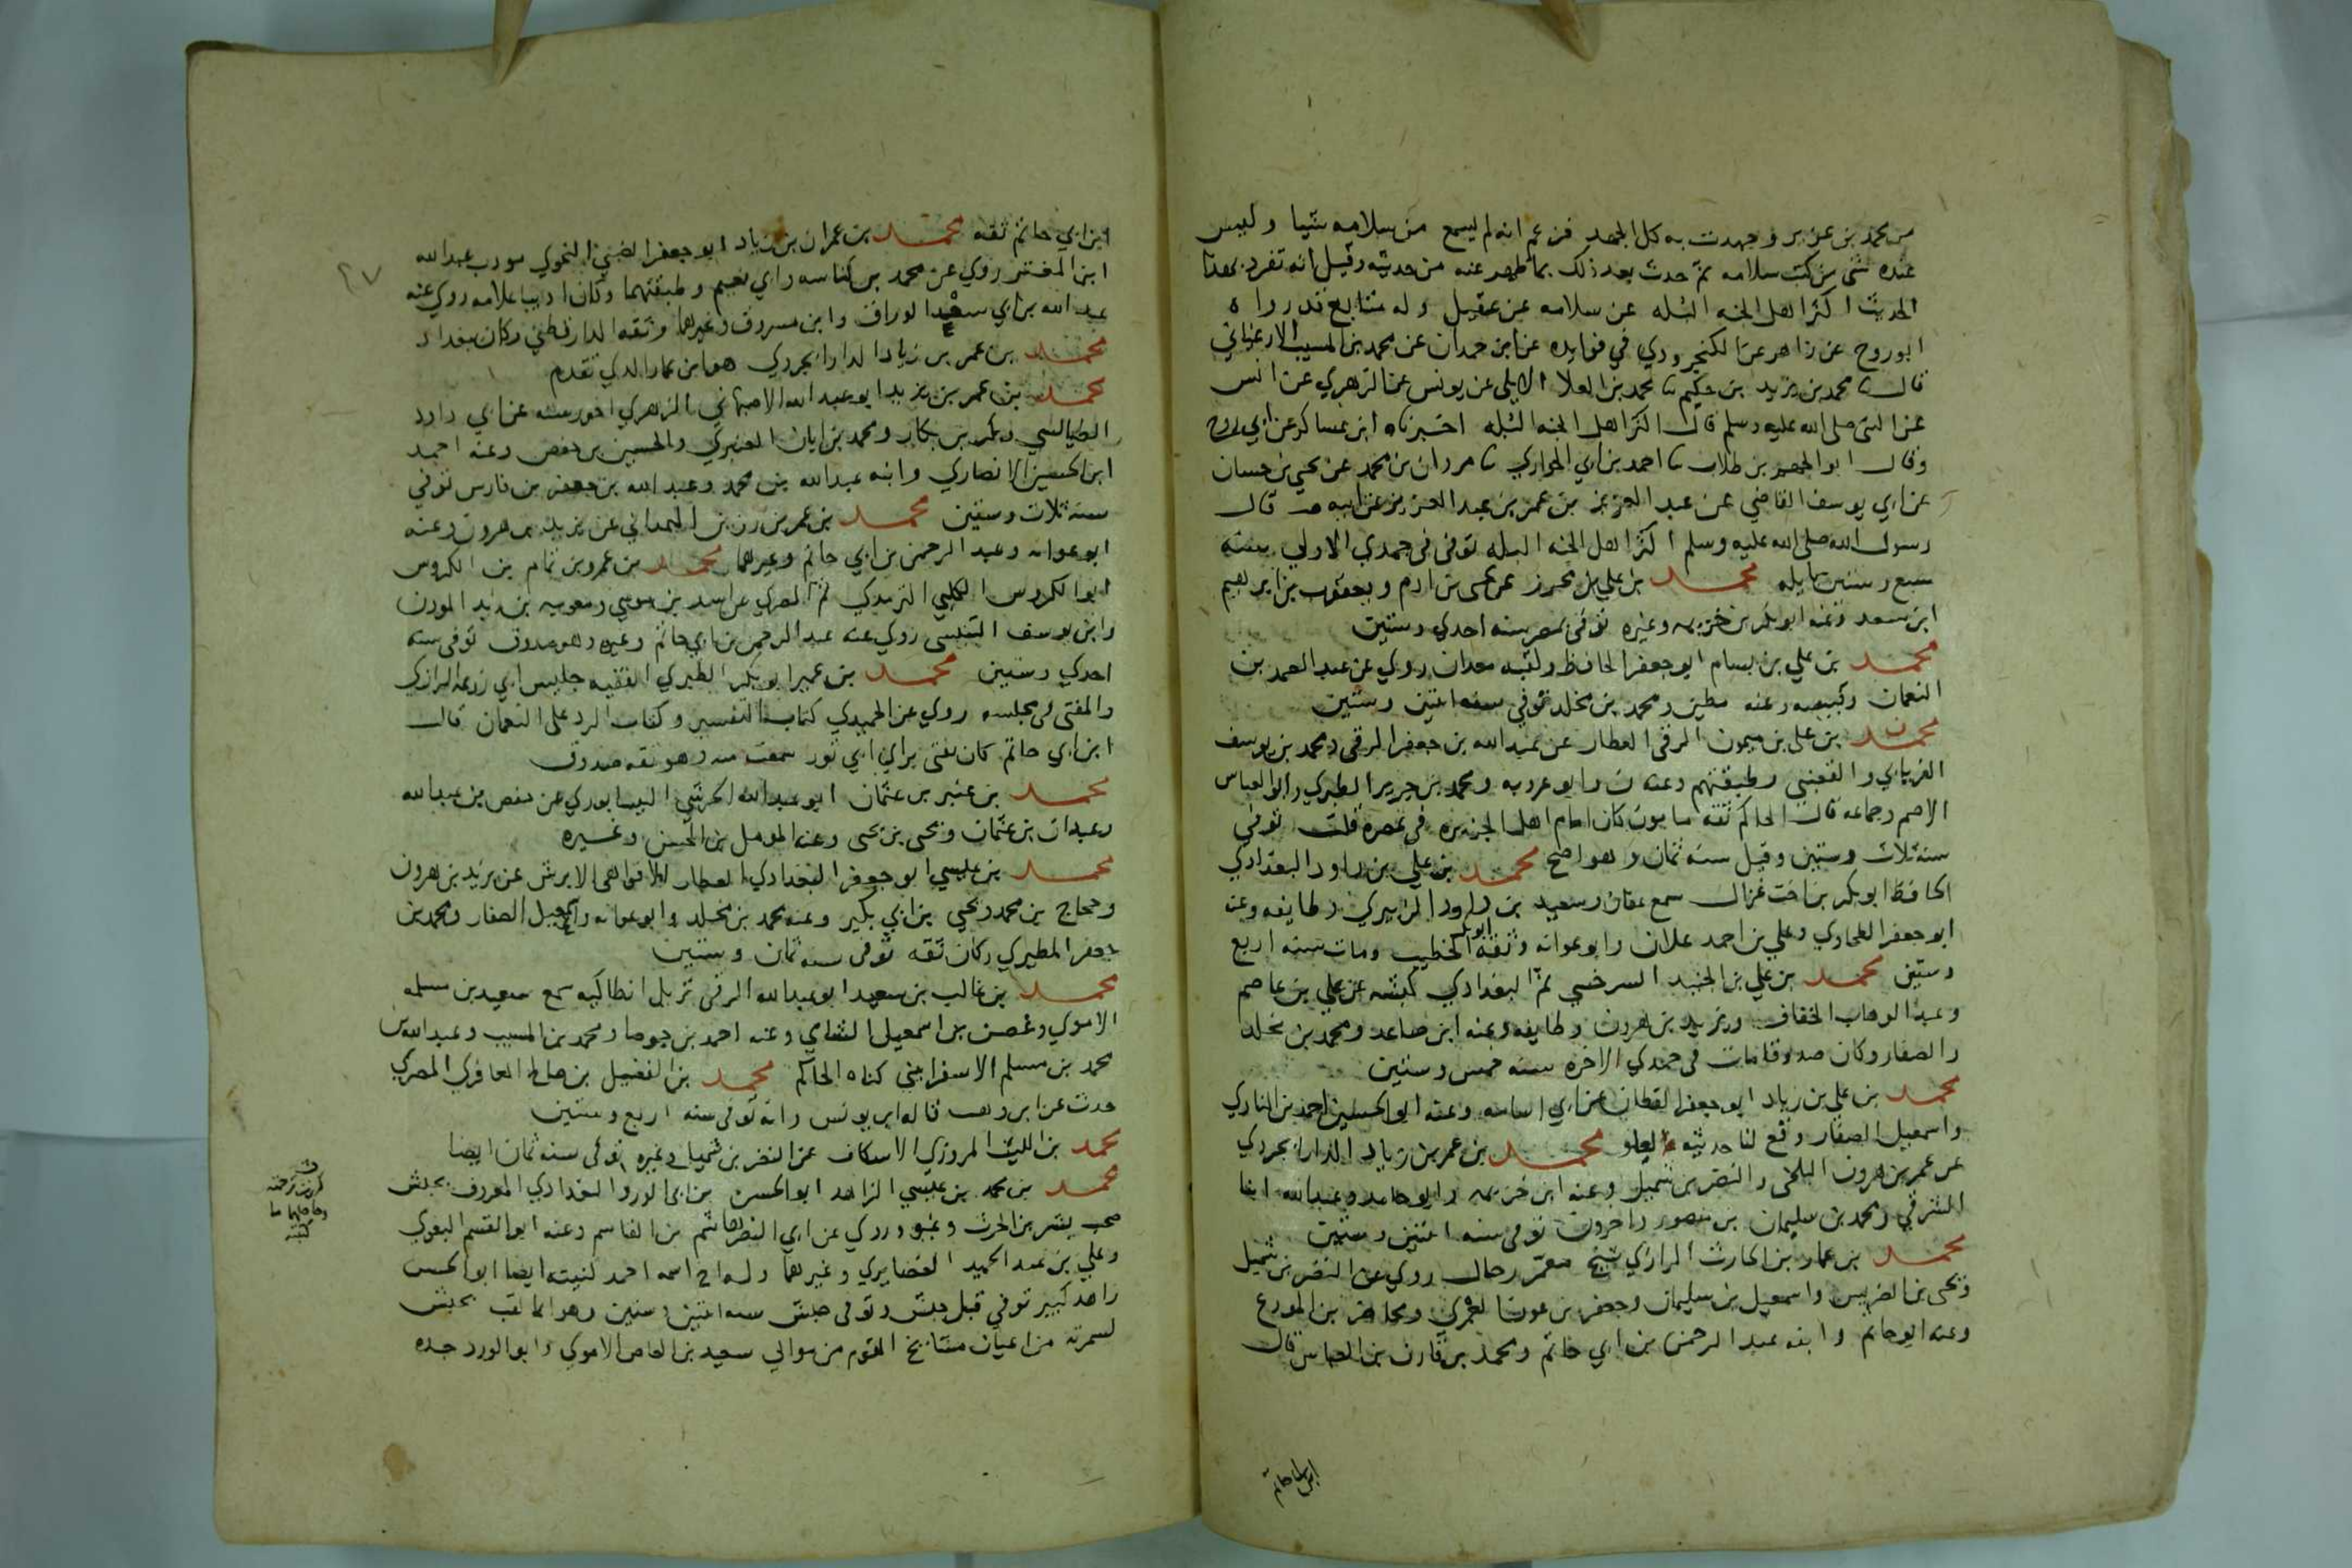 من محمد بن عزيز وجهدت به كل الجهد فزعم انه لم يسمع من سلامه شيا وليس
عنده شي من كتب سلامه ثم حدث بعد ذلك بما ظهر عنه من حديثه وقيل انه تفرد بهذا
الحديث اكثر اهل الجنه البله عن سلامه عن عقيل وله متابع قد رواه
ابو روح عن زاهر عن الكنجرودي في فوايده عن ابن حمدان عن محمد بن المسيب الارغياني
قال ثنا محمد بن يزيد بن حكيم ثنا محمد بن العلا الايلي عن يونس عن الزهري عن انس
عن النبي صلى الله عليه وسلم قال اكثر اهل الجنه البله اخبرناه ابن عساكر عن ابي روح
وقال ابو الجهم بن طلاب ثنا احمد بن ابي الحواري ثنا مروان بن محمد عن يحيى بن حسان
عن ابي يوسف القاضي عن عبد العزيز بن عمر بن عبد العزيز عن ابيه قال
رسول الله صلى الله عليه وسلم اكثر اهل الجنه البله توفي في جمدي الاولي سنه
سبع وستين بايله محمد بن علي بن محرز عن يحيى بن ادم ويعقوب بن ابرهيم
ابن سعد وعنه ابو بكر بن خزيمه وغيره توفي بمصر سنه احدي وستين
محمد بن علي بن بسام ابو جعفر الحافظ ولقبه معدان روي عن عبد الصمد بن
النعمان وقبيصه وعنه مطين ومحمد بن مخلد توفي سنه اثنتين وستين
محمد بن علي بن ميمون الرقي العطار عن عبد الله بن جعفر الرقي ومحمد بن يوسف
الفريابي والقعنبي وطبقتهم وعنه ن وابو عروبه ومحمد بن جرير الطبري وابو العباس
الاصم وجماعه قال الحاكم ثقه مامون كان امام اهل الجزيره في عصره قلت توفي
سنه ثلاث وستين وقيل سنه ثمان وهو اصح محمد بن علي بن داود البغدادي
الحافظ ابو بكر بن اخت غزال سمع عفان وسعيد بن داود الزبيري وطايفه وعنه
ابو جعفر الطحاوي وعلي بن احمد علان وابو عوانه وثقه ابو بكر الخطيب ومات سنه اربع
وستين محمد بن علي بن الجنيد السرخسي ثم البغدادي كبشه عن علي بن عاصم
وعبد الوهاب الخفاف ويزيد بن هرون وطايفه وعنه ابن صاعد ومحمد بن مخلد
والصفار وكان صدوقا مات في جمدي الاخره سنه خمس وستين
محمد بن علي بن زياد ابو جعفر القطان عن ابي اسامه وعنه ابو الحسين احمد بن المنادي
واسمعيل الصفار وقع لنا حديثه بعلو محمد بن عمر بن زياد الدارابجردي
عن عمر بن هرون البلخي والنضر بن شميل وعنه ابن خزيمه وابو حامد وعبد الله ابنا
الشرقي ومحمد بن سليمان بن منصور واخرون توفي سنه اثنتين وستين
محمد بن عمار بن الحارث الرازي شيخ معمر رحال روي عن النضر بن شميل
ويحيى بن الضريس واسمعيل بن سليمان وجعفر بن عون العمري ومحاضر بن المورع
وعنه ابو حاتم وابنه عبد الرحمن بن ابي حاتم ومحمد بن قارن بن العباس قال
ابن ابي حاتم
ابن ابي حاتم ثقه محمد بن عمران بن زياد ابو جعفر الضبي النحوي مودب عبد الله
ابن المعتز روي عن محمد بن كناسه وابي نعيم وطبقتهما وكان اديبا علامه روي عنه
عبد الله بن ابي سعد الوراق وابن مسروق وغيرهما وثقه الدارقطني وكان ببغداد
محمد بن عمر بن زياد الدارابجردي هو ابن عمار الذي تقدم
محمد بن عمر بن يزيد ابو عبد الله الاصبهاني الزهري اخو رسته عن ابي داود
الطيالسي وبكر بن بكار ومحمد بن ابان العنبري والحسين بن حفص وعنه احمد
ابن الحسين الانصاري وابنه عبد الله بن محمد وعبد الله بن جعفر بن فارس توفي
سنه ثلاث وستين محمد بن عمر بن رزين الهمداني عن يزيد بن هرون وعنه
ابو عوانه وعبد الرحمن بن ابي حاتم وغيرهما محمد بن عمرو بن تمام بن الكروس
ابو الكروس الكلبي ثم المصري عن اسد بن موسي ومعويه بن المودن
وابن يوسف التنيسي روي عنه عبد الرحمن بن ابي حاتم وغيره وهو صدوق توفي سنه
احدي وستين محمد بن عمير ابو بكر الطبري الفقيه جليس ابي زرعه الرازي
والمفتي في مجلسه روي عن الحميدي كتاب التفسير وكتاب الرد علي النعمان قال
ابن ابي حاتم كان يفتي براي ابي ثور سمعت منه وهو ثقه صدوق
محمد بن عنبر بن عثمان ابو عبد الله الحرشي النيسابوري عن حفص بن عبد الله
وعبدان بن عثمان ويحيى بن يحيى وعنه المومل بن الحسن وغيره
محمد بن عيسي ابو جعفر البغدادي العطار الافواهي الابرش عن يزيد بن هرون
وحجاج بن محمد ويحيى بن ابي بكير وعنه محمد بن مخلد وابو عوانه واسمعيل الصفار ومحمد بن
جعفر المطيري وكان ثقه توفي سنه ثمان وستين
محمد بن غالب بن سعيد ابو عبد الله الرقي نزيل انطاكيه سمع سعيد بن مسلمه
الاموي وغصن بن اسمعيل وعنه احمد بن جوصا ومحمد بن المسيب وعبد الله بن
محمد بن مسلم الاسفرايني كناه الحاكم محمد بن الفضيل بن صالح المعافري المصري
حدث عن ابن وهب قاله ابن يونس وانه توفي سنه اربع وستين
محمد بن الليث المروزي الاسكاف عن النضر بن شميل وغيره توفي سنه ثمان ايضا
محمد بن محمد بن عيسي الزاهد ابو الحسن بن ابي الورد البغدادي المعروف بحبش
صحب بشر بن الحرث وغيره وروي عن ابي النضر هاشم بن القاسم وعنه ابو القسم البغوي
وعلي بن عبد الحميد الغضايري وغيرهما وله اخ اسمه احمد كنيته ايضا ابو الحسن
زاهد كبير توفي قبل حبش وتوفي حبش سنه اثنتين وستين وهو انما لقب بحبش
لسمرته من اعيان مشايخ القوم من موالي سعيد بن العاص الاموي وابو الورد جده